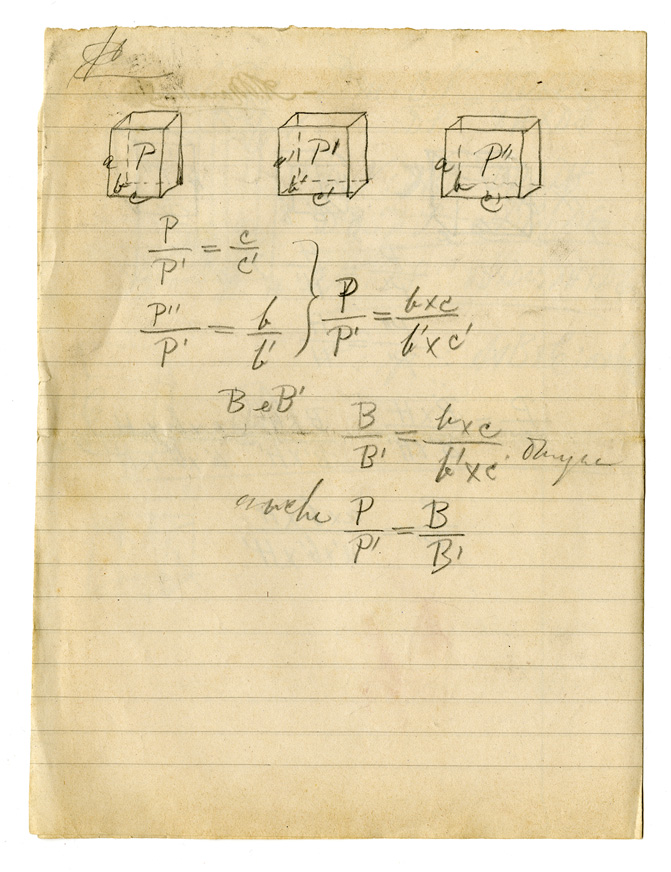 a P b c
a'' P' b' c'
a P'' b b'
P/P' = c/c'
P''/P' = b/b'
P/P' = b×c/b'×c'
B e B'
B/B' = b×c/b'×c
anche P/P' = B/B'